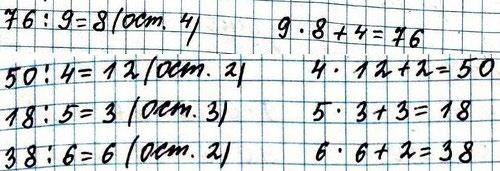 76 : 9 = 8 (ост. 4) 9 · 8 + 4 = 76
50 : 4 = 12 (ост. 2) 4 · 12 + 2 = 50
18 : 5 = 3 (ост. 3) 5 · 3 + 3 = 18
38 : 6 = 6 (ост. 2) 6 · 6 + 2 = 38